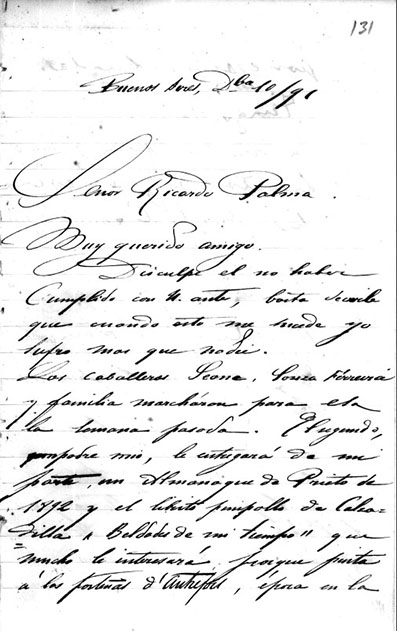 131
Buenos Aires, Dbre 10/91
Señor Ricardo Palma.
Muy querido amigo.
Disculpe el no haber
Cumplido con U. antes, basta decirle
que cuando esto me sucede yo
sufro mas que nadie.
Los caballeros Leone, Souza Ferreira
y familia marcháron para esa
la semana pasada. El segundo,
compadre mio, le entregará de mi
parte, un Almanaque de Prieto de
1892 y el librito pimpollo de Calza-
dilla "Beldades de mi tiempo" que
mucho le interesará, porque pinta
á las porteñas d'Autrefois, época en la